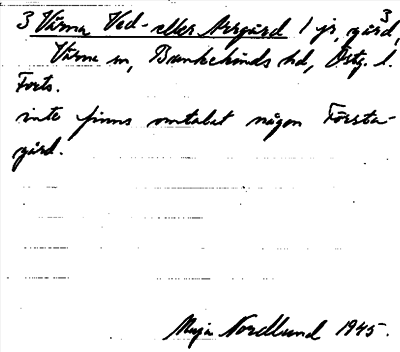 3 Värna Ved- eller Norrgård 1 jr, gård,³
Värna sn, Bankekinds hd, Östg. l.
Forts.
inte finns omtalat någon Första-
gård.
Maja Nordlund 1945.